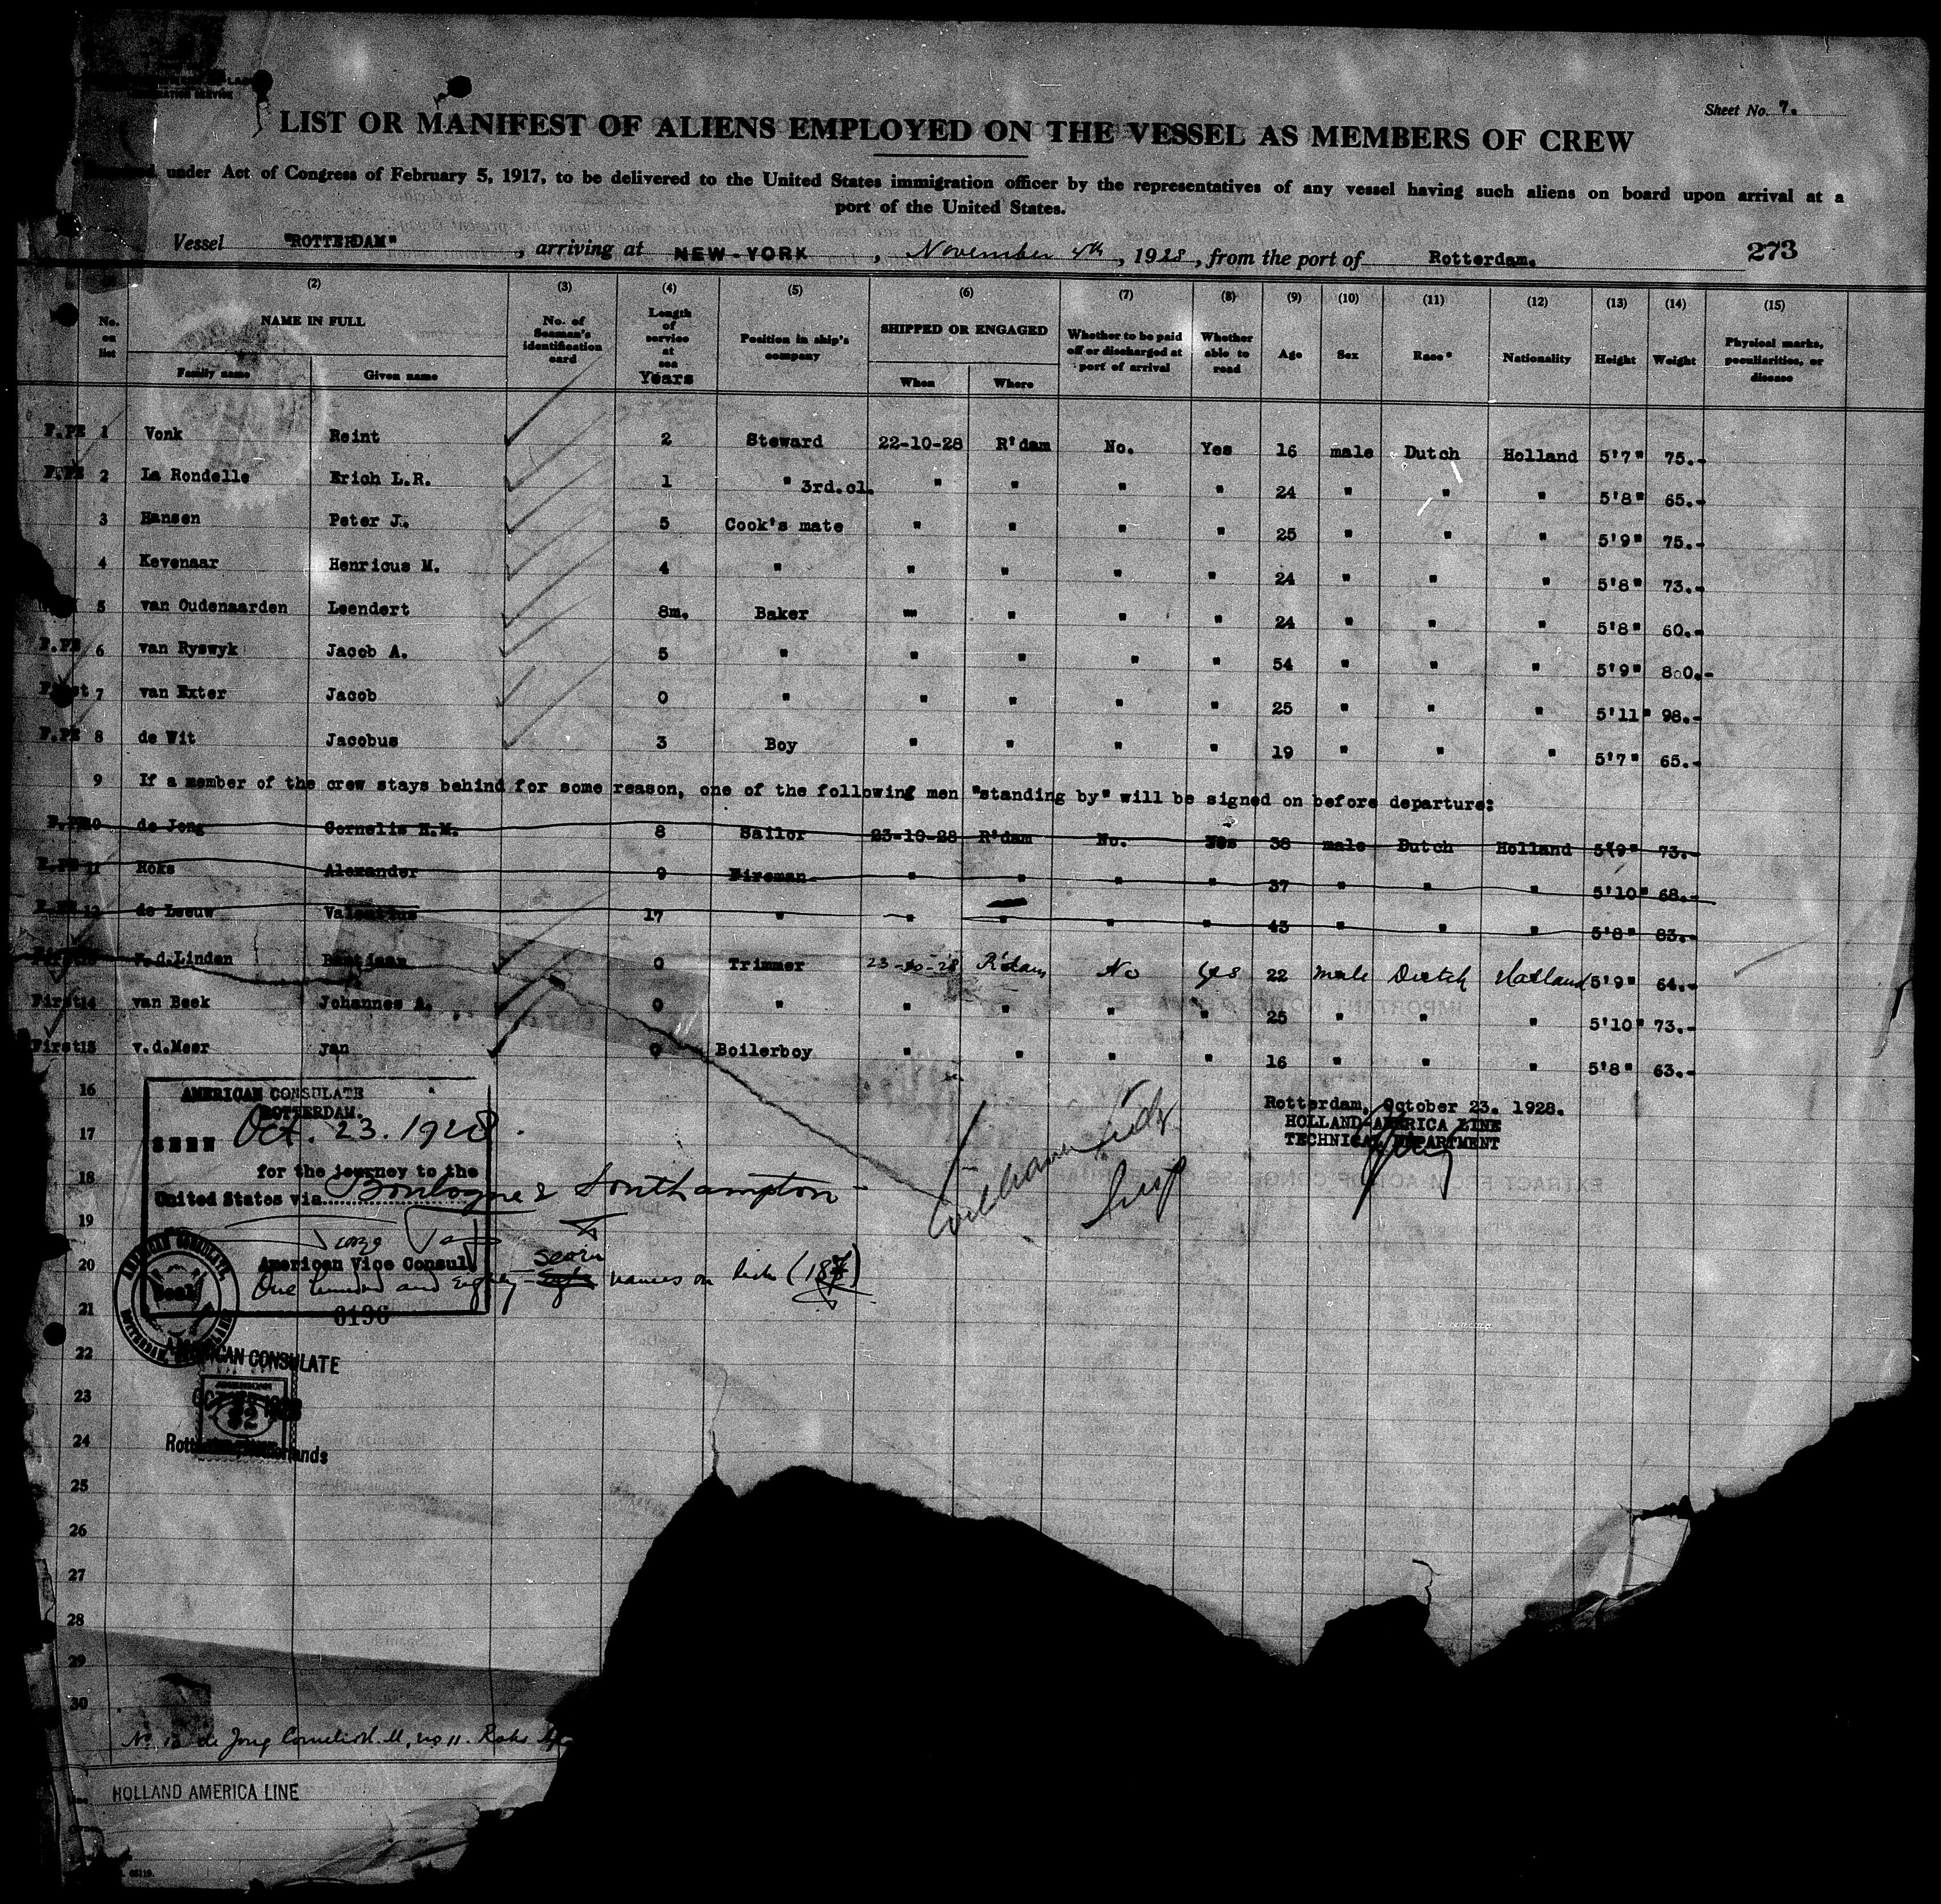 Sheet No. 7.
LIST OR MANIFEST OF ALIENS EMPLOYED ON THE VESSEL AS MEMBERS OF CREW
under Act of Congress of February 5, 1917, to be delivered to the United States immigration officer by the representatives of any vessel having such aliens on board upon arrival at a
port of the United States.
Vessel "ROTTERDAM", arriving at NEW-YORK, November 4th, 1928, from the port of Rotterdam. 273
(2) (3) (4) (5) (6) (7) (8) (9) (10) (11) (12) (13) (14) (15)
No. on list NAME IN FULL No. of Seaman's identification card Length of service at sea Years Position in ship's company SHIPPED OR ENGAGED Whether to be paid off or discharged at port of arrival Whether able to read Age Sex Race* Nationality Height Weight Physical marks, peculiarities, or disease
Family name Given name When Where
F.PE 1 Vonk Reint 2 Steward 22-10-28 R'dam No. Yes 16 male Dutch Holland 5'7" 75.-
F.PE 2 La Rondelle Erich L.R. 1 " 3rd.cl. " " " " 24 " " " 5'8" 65.-
3 Hansen Peter J. 5 Cook's mate " " " " 25 " " " 5'9" 75.-
4 Kevenaar Henricus M. 4 " " " " " 24 " " " 5'8" 73.-
5 van Oudenaarden Leendert 8m. Baker " " " " 24 " " " 5'8" 60.-
F.PE 6 van Ryswyk Jacob A. 5 " " " " " 54 " " " 5'9" 80.-
First 7 van Exter Jacob 0 " " " " " 25 " " " 5'11" 98.-
F.PE 8 de Wit Jacobus 3 Boy " " " " 19 " " " 5'7" 65.-
9 If a member of the crew stays behind for some reason, one of the following men "standing by" will be signed on before departure:
F.PE 10 de Jong Cornelis H.M. 8 Sailor 23-10-28 R'dam No. Yes 38 male Dutch Holland 5'9" 73.-
F.PE 11 Roks Alexander 9 Fireman " " " " 37 " " " 5'10" 68.-
F.PE 12 de Leeuw Valentius 17 " " " " " 43 " " " 5'8" 83.-
First 13 v.d.Linden Bastiaan 0 Trimmer 23-10-28 R'dam No Yes 22 male Dutch Holland 5'9" 64.-
First 14 van Beek Johannes A. 0 " " " " " 25 " " " 5'10" 73.-
First 15 v.d.Meer Jan 0 Boilerboy " " " " 16 " " " 5'8" 63.-
16
AMERICAN CONSULATE
ROTTERDAM.
Rotterdam, October 23. 1928.
HOLLAND-AMERICA LINE
TECHNICAL DEPARTMENT
17
SEEN Oct. 23. 1928.
for the journey to the
18
United States via Boulogne & Southampton
19
20
American Vice Consul
One hundred and eighty-seven names on list (187)
21
6196
AMERICAN CONSULATE
Seal
22
AMERICAN CONSULATE
23
24
Rotterdam, Netherlands
25
26
27
28
29
30
No 10 de Jong Cornelis H. M, no 11. Roks
HOLLAND AMERICA LINE